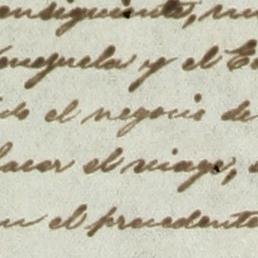 consiguiente,
Venezuela y el
el negocio de
hacer el viage,
en el precedente